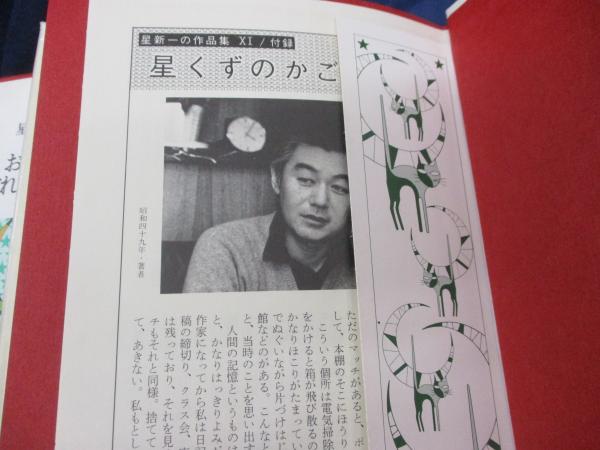 星新一の作品集 XI / 付録
星くずのかご
昭和四十九年・著者
ただのマッチがあると、ポ
して、本棚のそこにほうり
こういう個所は電気掃除
をかけると箱が飛び散るの
かなりほこりがたまってい
でぬぐいながら片づけはじ
館などのがある。こんなと
と、当時のことを思い出す
人間の記憶というものは
と、かなりはっきりよみが
作家になってから私は日記
稿の締切り、クラス会、
は残っており、それを見
チもそれと同様。捨てて
て、あきない。私もとし